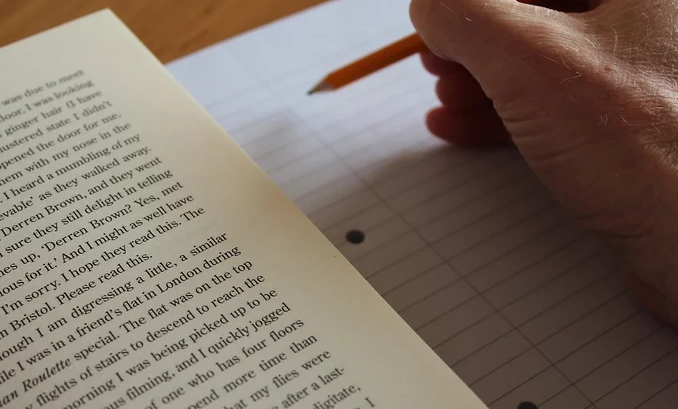 was due to meet
door. I was looking
ginger hair (I have
flustered state I didn't
opened the door for me.
hem with my nose in the
. I heard a mumbling of my
evable' as they walked away.
Derren Brown, and they went
sure they still delight in telling
nes up, 'Derren Brown? Yes, met
ious for it.' And I might as well have
I'm sorry. I hope they read this. The
n Bristol. Please read this.
hough I am digressing a little, a similar
hile I was in a friend's flat in London during
ian Roulette special. The flat was on the top
flights of stairs to descend to reach the
morning I was being picked up to be
ous filming, and I quickly jogged
of one who has four floors
pend more time than
hat my flies were
after a last-
digitate,
I